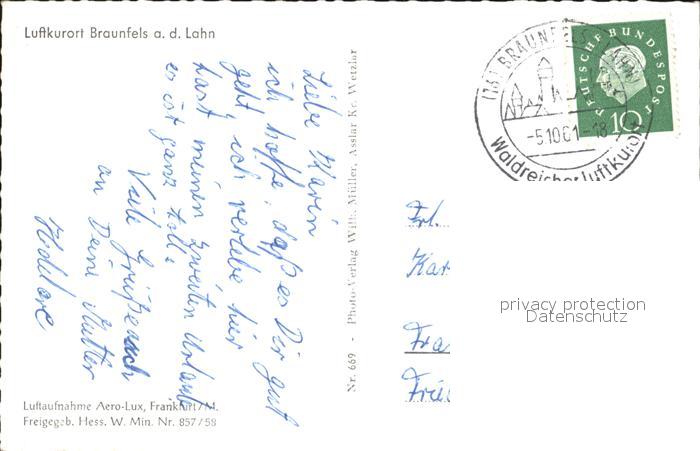 Luftkurort Braunfels a. d. Lahn
Liebe Karin
ich hoffe, daß es Dir gut
geht, ich verlebe hier
fast meinen zweiten Urlaub
es ist ganz toll.
Viele Grüße auch
an Deine Mutter
Hidelore
Luftaufnahme Aero-Lux, Frankfurt/M.
Freigegeb. Hess. W. Min. Nr. 857/58
Nr. 669 - Photo-Verlag Wilh. Müller, Asslar Kr. Wetzlar
(16) BRAUNFELS
-5.10.61-18
Waldreicher Luftkurort
DEUTSCHE BUNDESPOST
10
Frl.
Kar
Fra
privacy protection
Datenschutz